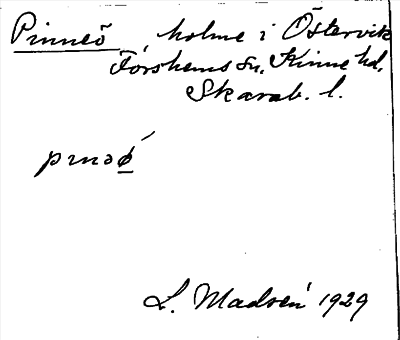 Pinneö, holme i Östervik
Forshems sn, Kinne hd.
Skarab. l.
L. Madsén 1929